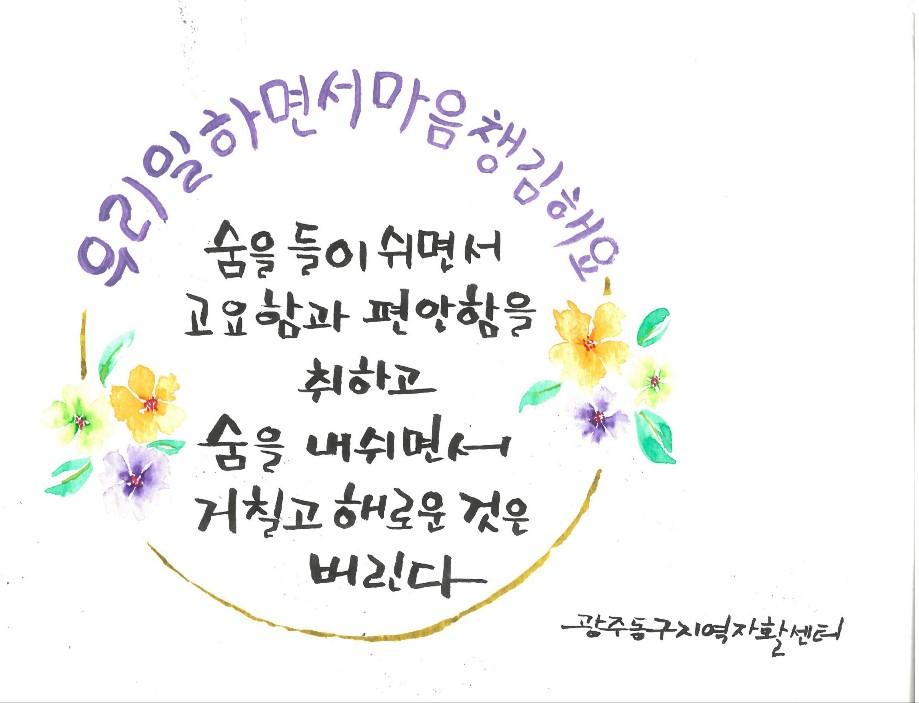 우리일하면서마음챙김해요
숨을 들이 쉬면서
고요함과 편안함을
취하고
숨을 내쉬면서
거칠고 해로운 것은
버린다
광주동구지역자활센터